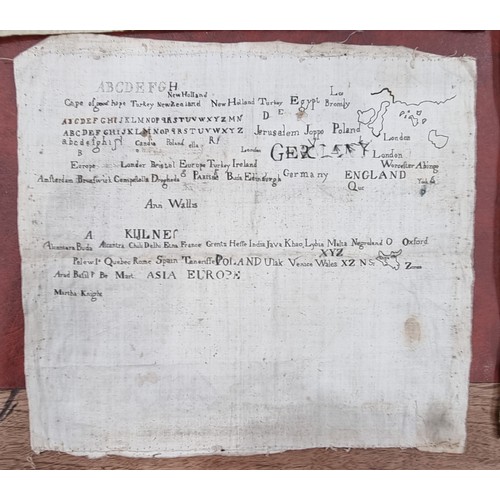 ABCDEFGH
New Holland
Cape of good hope Turkey New Zeniand New Holland Turkey Egypt Bromly
ABCDEFGHIJKLMNOPQRSTUVWXYZMN
ABCDEFGHIJKLMNOPQRSTUVWXYZ Jerusalem Joppe Poland
London
abcdefghijſl Candia Poland ella R
London GERMANY London
Europe London Bristol Europe Turkey Ireland Worcester Abingo
Amsterdam Brunswick Compostella Drogheda Buda Edinburgh Germany ENGLAND York
Que
Ann Wallis
A KILNES
Alcantara Buda Alcantra Chili Delhi Etna France Genta Hesse India Java Khao Lisbon Malta Negroland O Oxford
XYZ
Pelew Is Quebec Rome Spain Teneriffe POLAND Ulak Venice Wales XZ NS Zeron
Arad Basil Be Mont ASIA EUROPE
Martha Knight